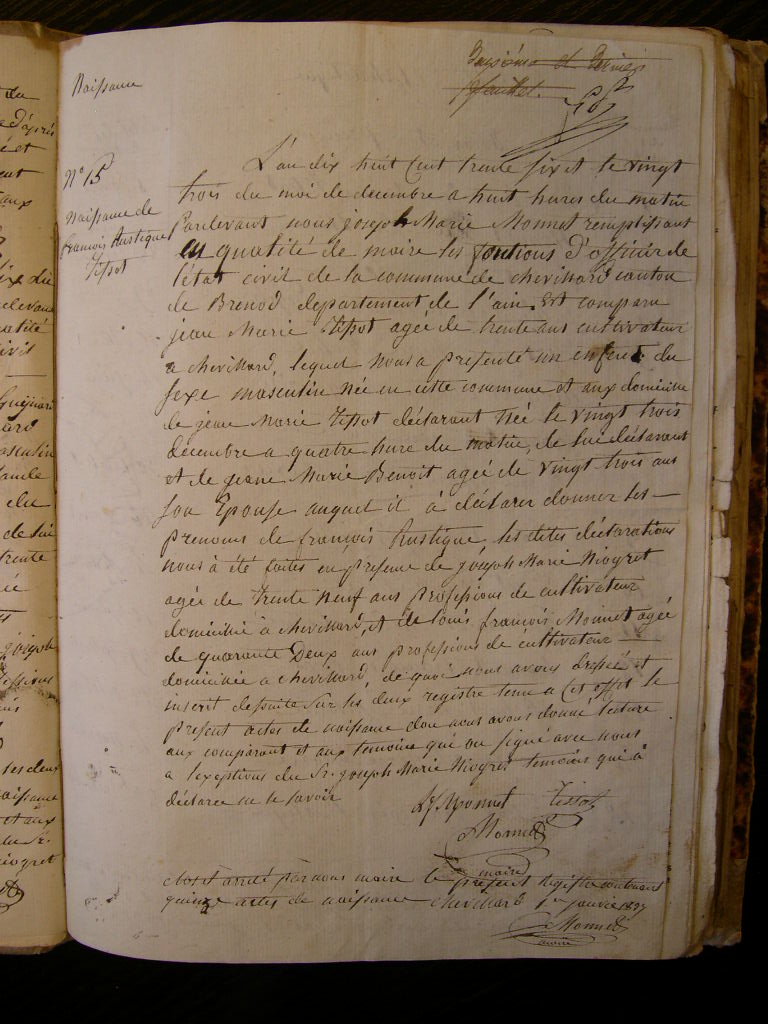 Naissance
et dernier
feuillet.
N° 15
Naissance de
françois Rustique
Tissot
L'an dix huit Cent trente six et le vingt
trois du moi de decembre a huit hures du matin
Pardevant nous joseph Marie Monnet remplissant
en qualité de maire les fontions d'officier de
l'état civil de la commune de chevillard canton
de Brenod departement de l'ain Est comparu
jean Marie Tissot agée de trente ans cultivateur
a chevillard, lequel nous a presenté un enfent du
sexe masculin née en cette commune et aux domicile
de jean Marie Tissot déclarant née le vingt trois
décembre a quatre hure du matin, de lui déclarant
et de jeane Marie Benoit agée de vingt trois ans
son Epouse auquel il à déclarer donner les
prenoms de françois Rustique les dites déclarations
nous à été faites en presense de joseph Marie Niogret
agée de Trente Neuf ans professions de cultivateur
domicilié à chevillard, et de louis françois Monnet agée
de quarante Deux ans professions de cultivateur
domiciliée a chevillard, de quoi nous avons dressée et
inscrit desuite sur les deux registre tenu a Cet effet le
present actes de naissance don nous avons donné lecture
aux comparant et aux temoins qui on signé avec nous
a lexceptions du Sr. joseph Marie Niogret temoins qui à
déclarée ne le savoir
L f Monnet Tissot
Monnet
maire
clos et arreté par nous maire le présent Registre contenant
quinze actes de naissance chevillard 1er janvier 1837
Monnet
maire